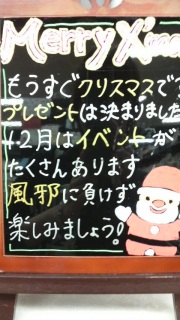 Merry X'ma
もうすぐクリスマスです
プレゼントは決まりました
12月はイベントが
たくさんあります
風邪に負けず
楽しみましょう!